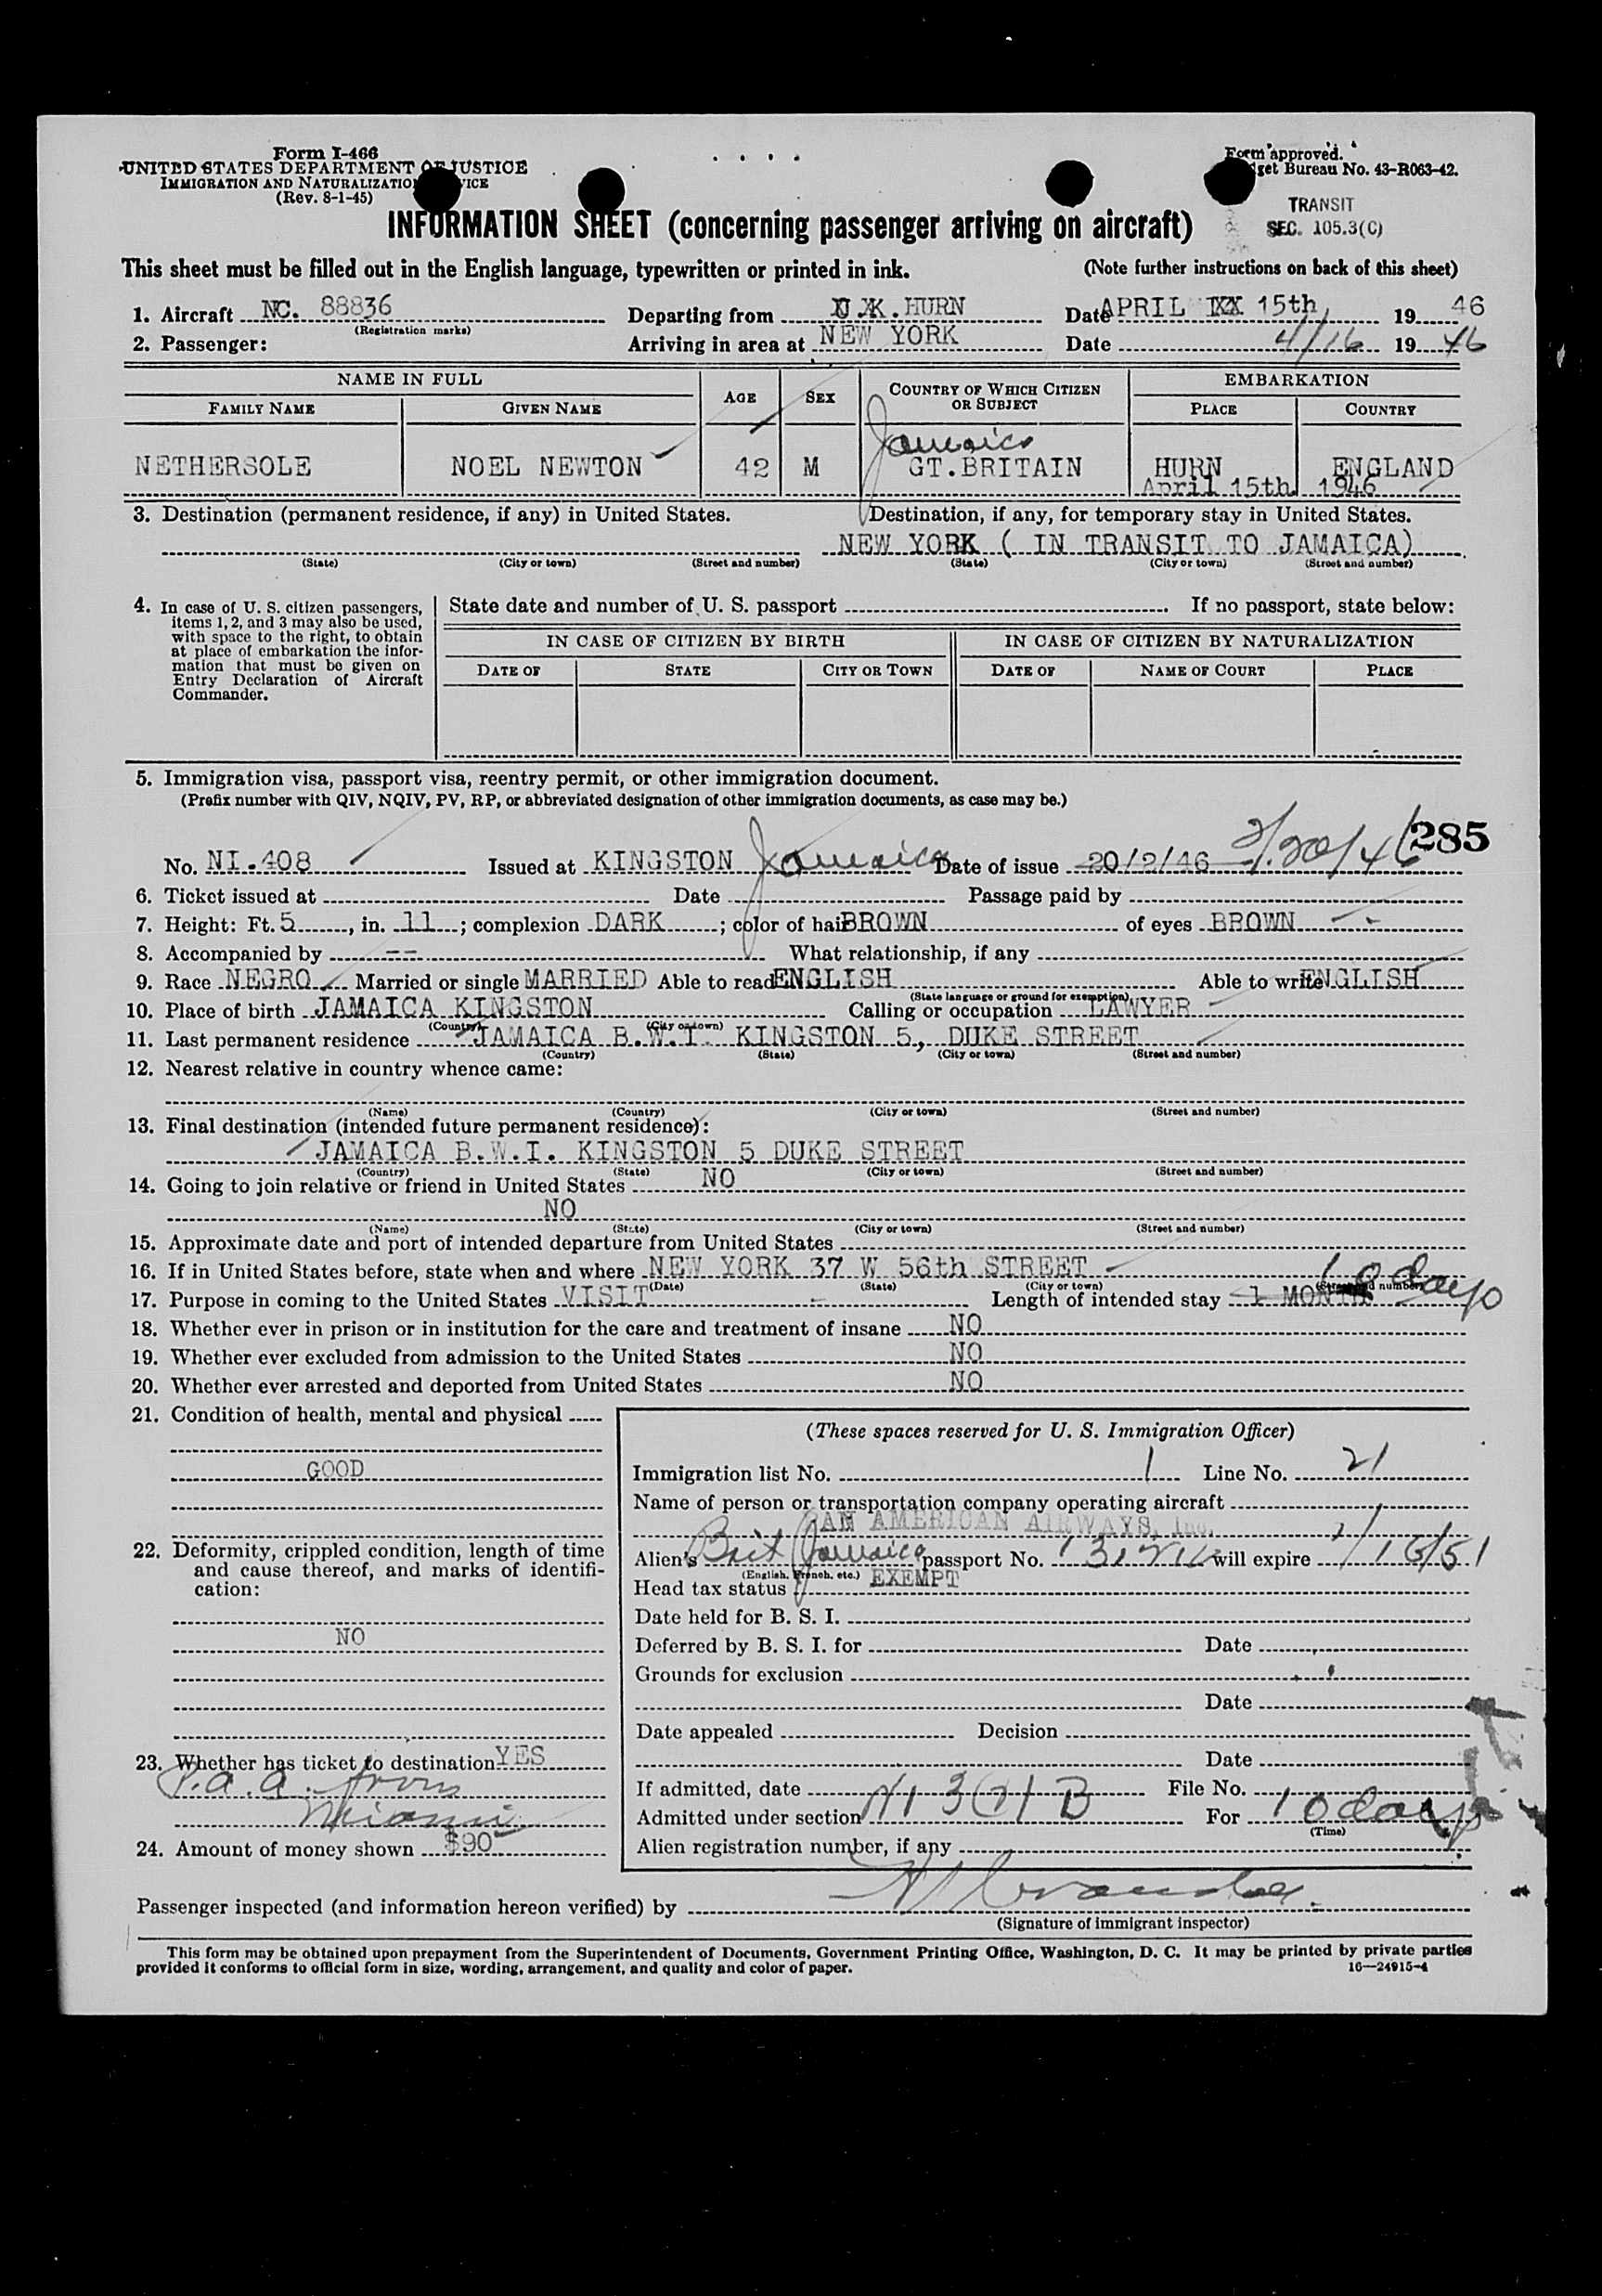 Form I-466
UNITED STATES DEPARTMENT OF JUSTICE
IMMIGRATION AND NATURALIZATION SERVICE
(Rev. 8-1-45)
Form approved.
Budget Bureau No. 43-R063-42.
TRANSIT
SEC. 105.3(C)
INFORMATION SHEET (concerning passenger arriving on aircraft)
This sheet must be filled out in the English language, typewritten or printed in ink.
(Note further instructions on back of this sheet)
1. Aircraft NC. 88836 Departing from U.K. HURN Date APRIL XX 15th, 1946
(Registration marks)
2. Passenger: Arriving in area at NEW YORK Date 4/16 1946
NAME IN FULL AGE SEX COUNTRY OF WHICH CITIZEN OR SUBJECT EMBARKATION
FAMILY NAME GIVEN NAME PLACE COUNTRY
Jamaica
NETHERSOLE NOEL NEWTON 42 M GT.BRITAIN HURN ENGLAND
April 15th 1946
3. Destination (permanent residence, if any) in United States. Destination, if any, for temporary stay in United States.
NEW YORK ( IN TRANSIT TO JAMAICA)
(State) (City or town) (Street and number) (State) (City or town) (Street and number)
4. In case of U. S. citizen passengers, items 1, 2, and 3 may also be used, with space to the right, to obtain at place of embarkation the information that must be given on Entry Declaration of Aircraft Commander.
State date and number of U. S. passport If no passport, state below:
IN CASE OF CITIZEN BY BIRTH IN CASE OF CITIZEN BY NATURALIZATION
DATE OF STATE CITY OR TOWN DATE OF NAME OF COURT PLACE
5. Immigration visa, passport visa, reentry permit, or other immigration document.
(Prefix number with QIV, NQIV, PV, RP, or abbreviated designation of other immigration documents, as case may be.)
285
No. NI.408 Issued at KINGSTON Jamaica Date of issue 20/2/46 2/20/46
6. Ticket issued at Date Passage paid by
7. Height: Ft. 5, in. 11; complexion DARK; color of hair BROWN of eyes BROWN
8. Accompanied by -- What relationship, if any
9. Race NEGRO Married or single MARRIED Able to read ENGLISH Able to write ENGLISH
(State language or ground for exemption)
10. Place of birth JAMAICA KINGSTON Calling or occupation LAWYER
(Country) (City or town)
11. Last permanent residence JAMAICA B.W.I. KINGSTON 5, DUKE STREET
(Country) (State) (City or town) (Street and number)
12. Nearest relative in country whence came:
(Name) (Country) (City or town) (Street and number)
13. Final destination (intended future permanent residence):
JAMAICA B.W.I. KINGSTON 5 DUKE STREET
(Country) (State) (City or town) (Street and number)
14. Going to join relative or friend in United States NO
NO
(Name) (State) (City or town) (Street and number)
15. Approximate date and port of intended departure from United States
16. If in United States before, state when and where NEW YORK 37 W 56th STREET
(Date) (State) (City or town) (Street and number)
17. Purpose in coming to the United States VISIT Length of intended stay 1 MONTH 10 days
18. Whether ever in prison or in institution for the care and treatment of insane NO
19. Whether ever excluded from admission to the United States NO
20. Whether ever arrested and deported from United States NO
21. Condition of health, mental and physical
GOOD
22. Deformity, crippled condition, length of time and cause thereof, and marks of identification:
NO
23. Whether has ticket to destination YES
P.a.a. from
Miami
24. Amount of money shown $90
(These spaces reserved for U. S. Immigration Officer)
Immigration list No. 1 Line No. 21
Name of person or transportation company operating aircraft
PAN AMERICAN AIRWAYS, Inc.
Alien's Brit Jamaica passport No. will expire 1/16/51
(English, French, etc.)
Head tax status EXEMPT
Date held for B. S. I.
Deferred by B. S. I. for Date
Grounds for exclusion
Date
Date appealed Decision
Date
If admitted, date File No.
Admitted under section 3(2) B For 10 days
(Time)
Alien registration number, if any
Passenger inspected (and information hereon verified) by
(Signature of immigrant inspector)
This form may be obtained upon prepayment from the Superintendent of Documents, Government Printing Office, Washington, D. C. It may be printed by private parties
provided it conforms to official form in size, wording, arrangement, and quality and color of paper.
16—24915-4